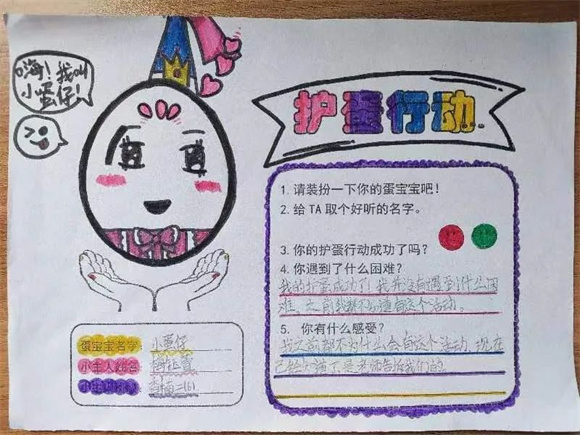 嗨！我叫
小蛋仔！
护蛋行动
1. 请装扮一下你的蛋宝宝吧！
2. 给 TA 取个好听的名字。
3. 你的护蛋行动成功了吗？
4. 你遇到了什么困难？
我的护蛋成功了，我并没有遇到什么困
难，之前我都不知道有这个活动。
5. 你有什么感受？
我之前都不为什么会有这个活动，现在
已经知道了是老师告诉我们的。
蛋宝宝名字 小蛋仔
小主人姓名